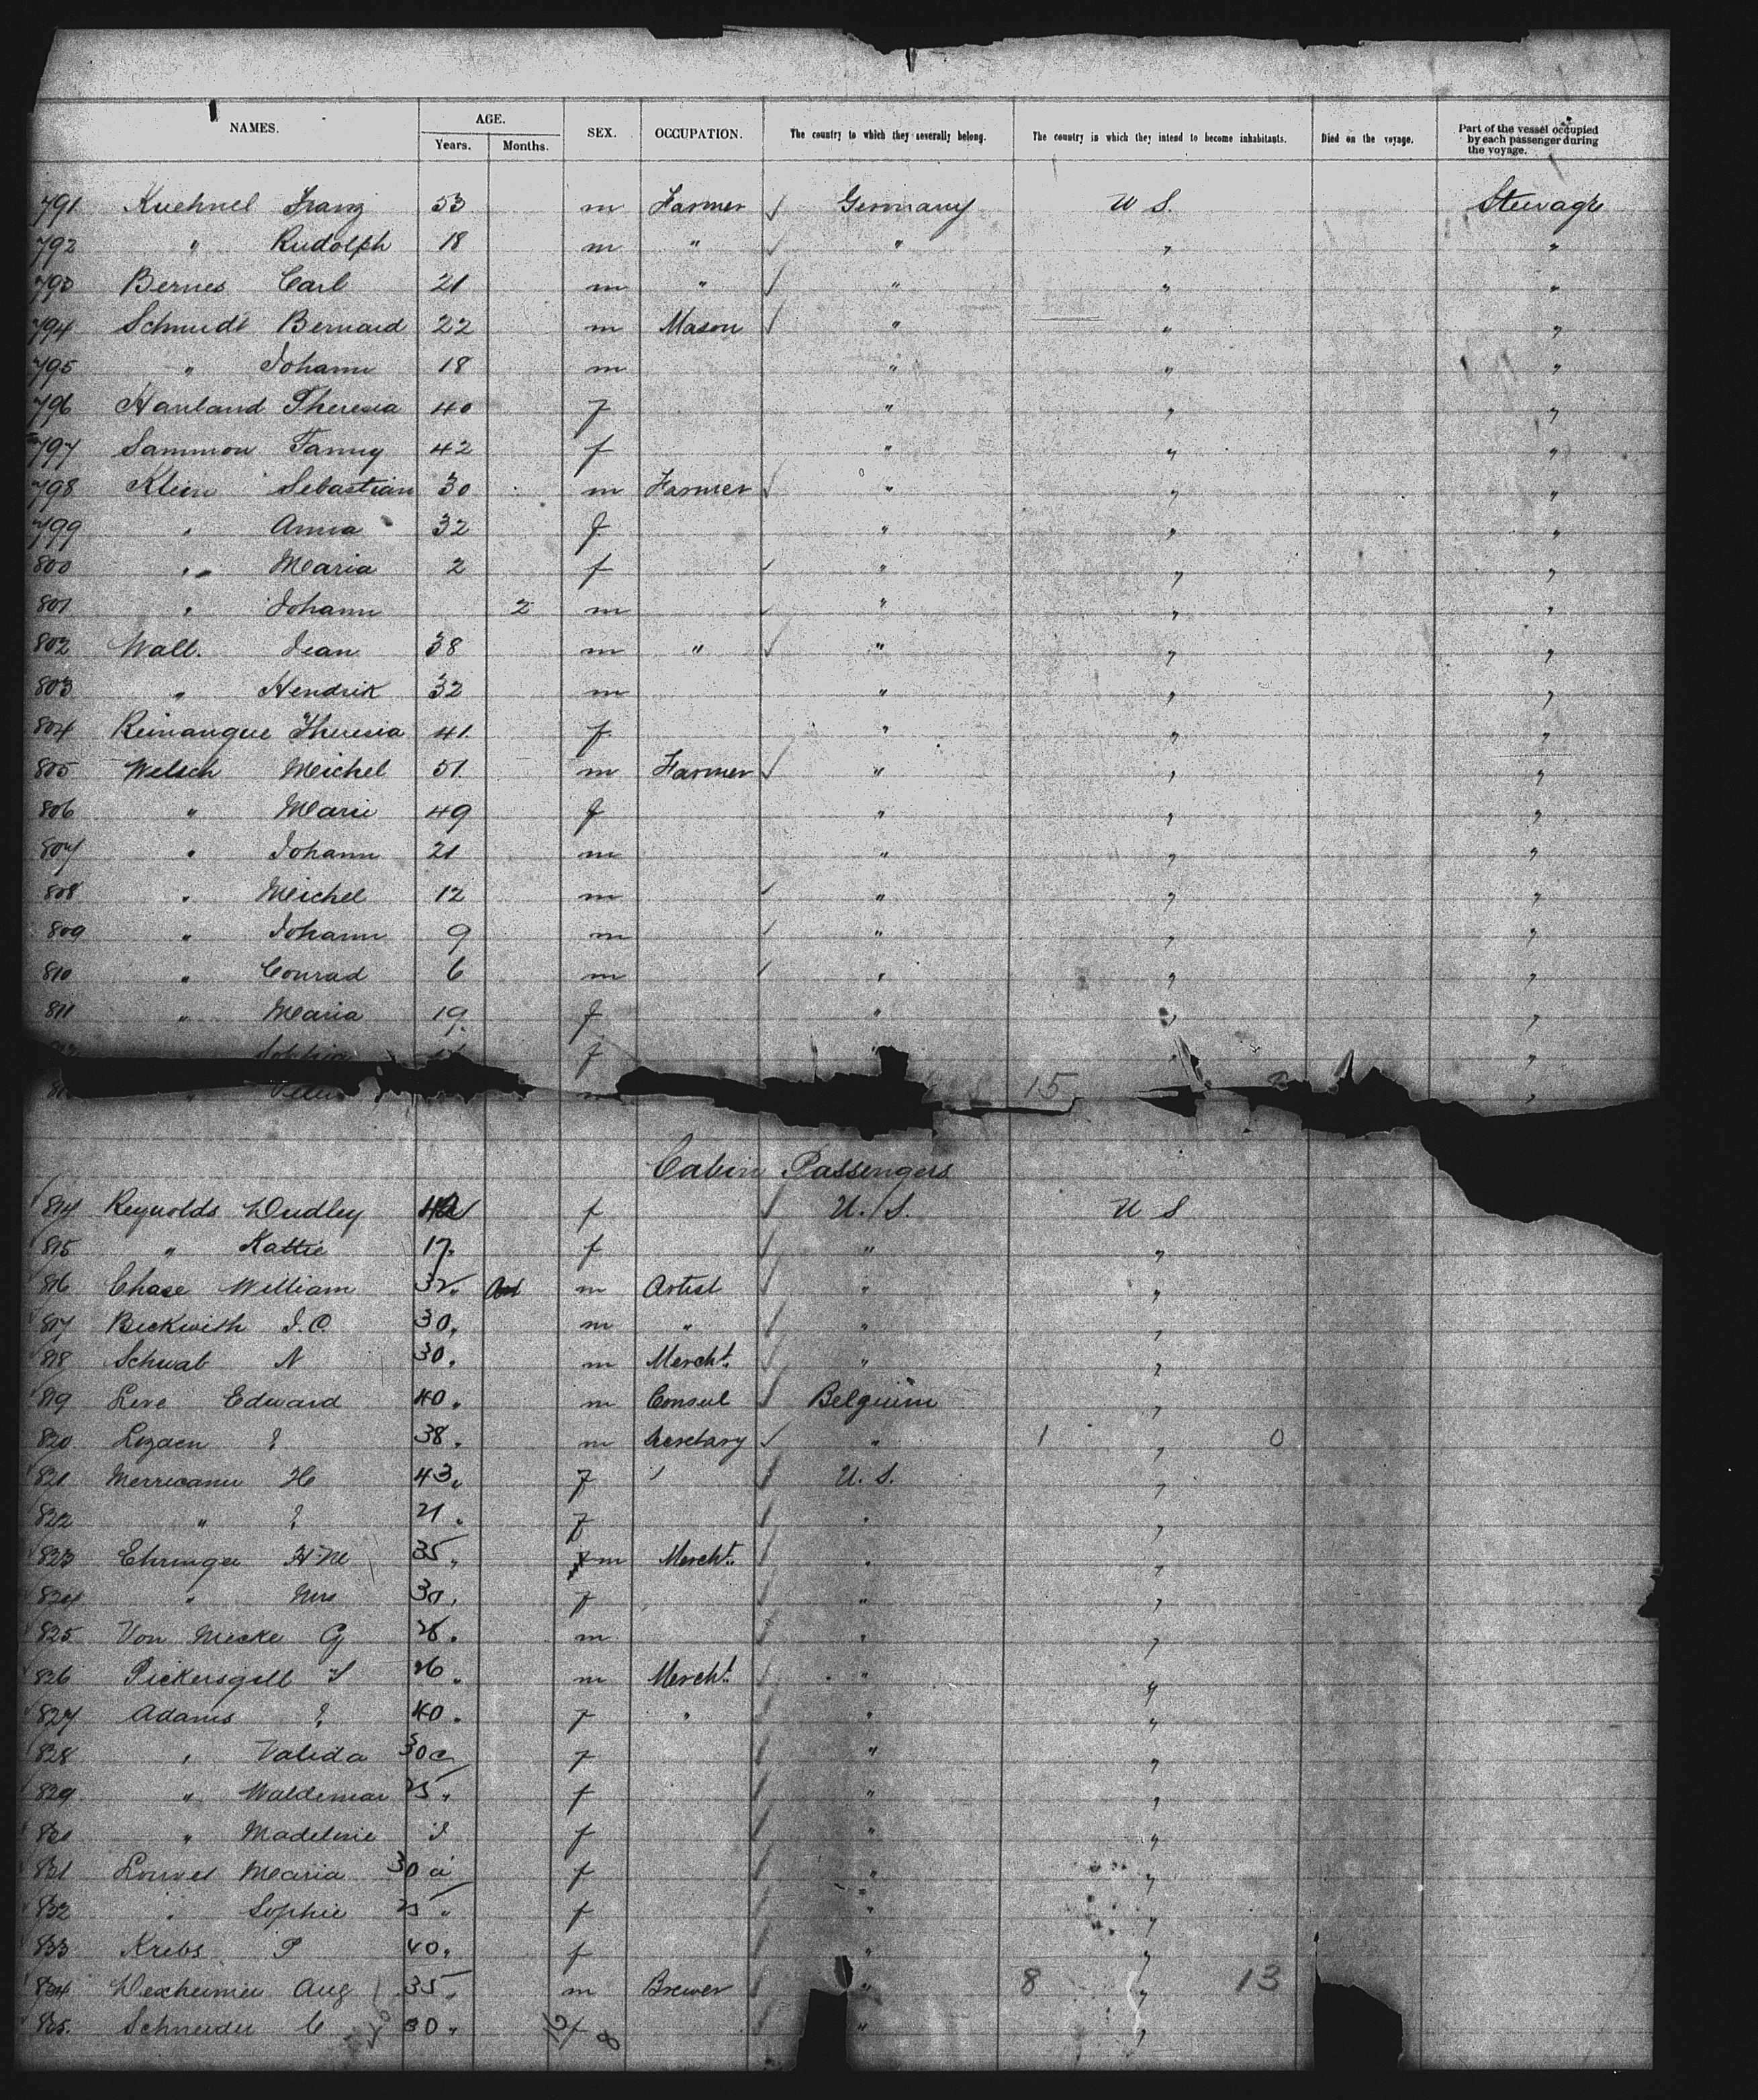 NAMES. AGE. SEX. OCCUPATION. The country to which they severally belong. The country in which they intend to become inhabitants. Died on the voyage. Part of the vessel occupied by each passenger during the voyage.
Years. Months.
791 Kuehnel Franz 53 m Farmer Germany U S. Steerage
792 " Rudolph 18 m " " " "
793 Bernes Carl 21 m " " " "
794 Schmidt Bernard 22 m Mason " " "
795 " Johann 18 m " " "
796 Hanland Theresia 40 f " " "
797 Sammon Fanny 42 f " " "
798 Klein Sebastian 30 m Farmer " " "
799 " Anna 32 f " " "
800 " Maria 2 f " " "
801 " Johann 2 m " " "
802 Wall. Jean 38 m " " " "
803 " Hendrik 32 m " " "
804 Reinangue Theresia 41 f " " "
805 Welsch Meichel 51 m Farmer " " "
806 " Marie 49 f " " "
807 " Johann 21 m " " "
808 " Meichel 12 m " " "
809 " Johann 9 m " " "
810 " Conrad 6 m " " "
811 " Maria 19 f " " "
Sophia f " " "
" Peter 15 "
Cabin Passengers
814 Reynolds Dudley f U. S. U S
815 " Kattie 17 f " "
816 Chase William 32 m Artist " "
817 Beckwith J. C. 30 m " " "
818 Schwab N 30 m Mercht. " "
819 Leve Edward 40 m Consul Belguim "
820 Lozaen ? 38 m Secretary " 1 " 0
821 Merricann H 43 f U. S. "
822 " ? 21 f " "
823 Ehringer H. M 35 m Mercht. " "
824 " Mrs 30 f " "
825 Von Mecke G 28 m " "
826 Pickersgill 26 m Mercht. " "
827 Adams ? 40 f " " "
828 " Valida 30 f " "
829 " Waldemar 25 f " "
830 " Madeline f " "
831 Louves Maria 30 f " "
832 " Sophie 25 f " "
833 Krebs P 40 f " "
834 Wexheimer Aug 35 m Brewer " 8 " 13
835. Schneider C 30 f 8 " "